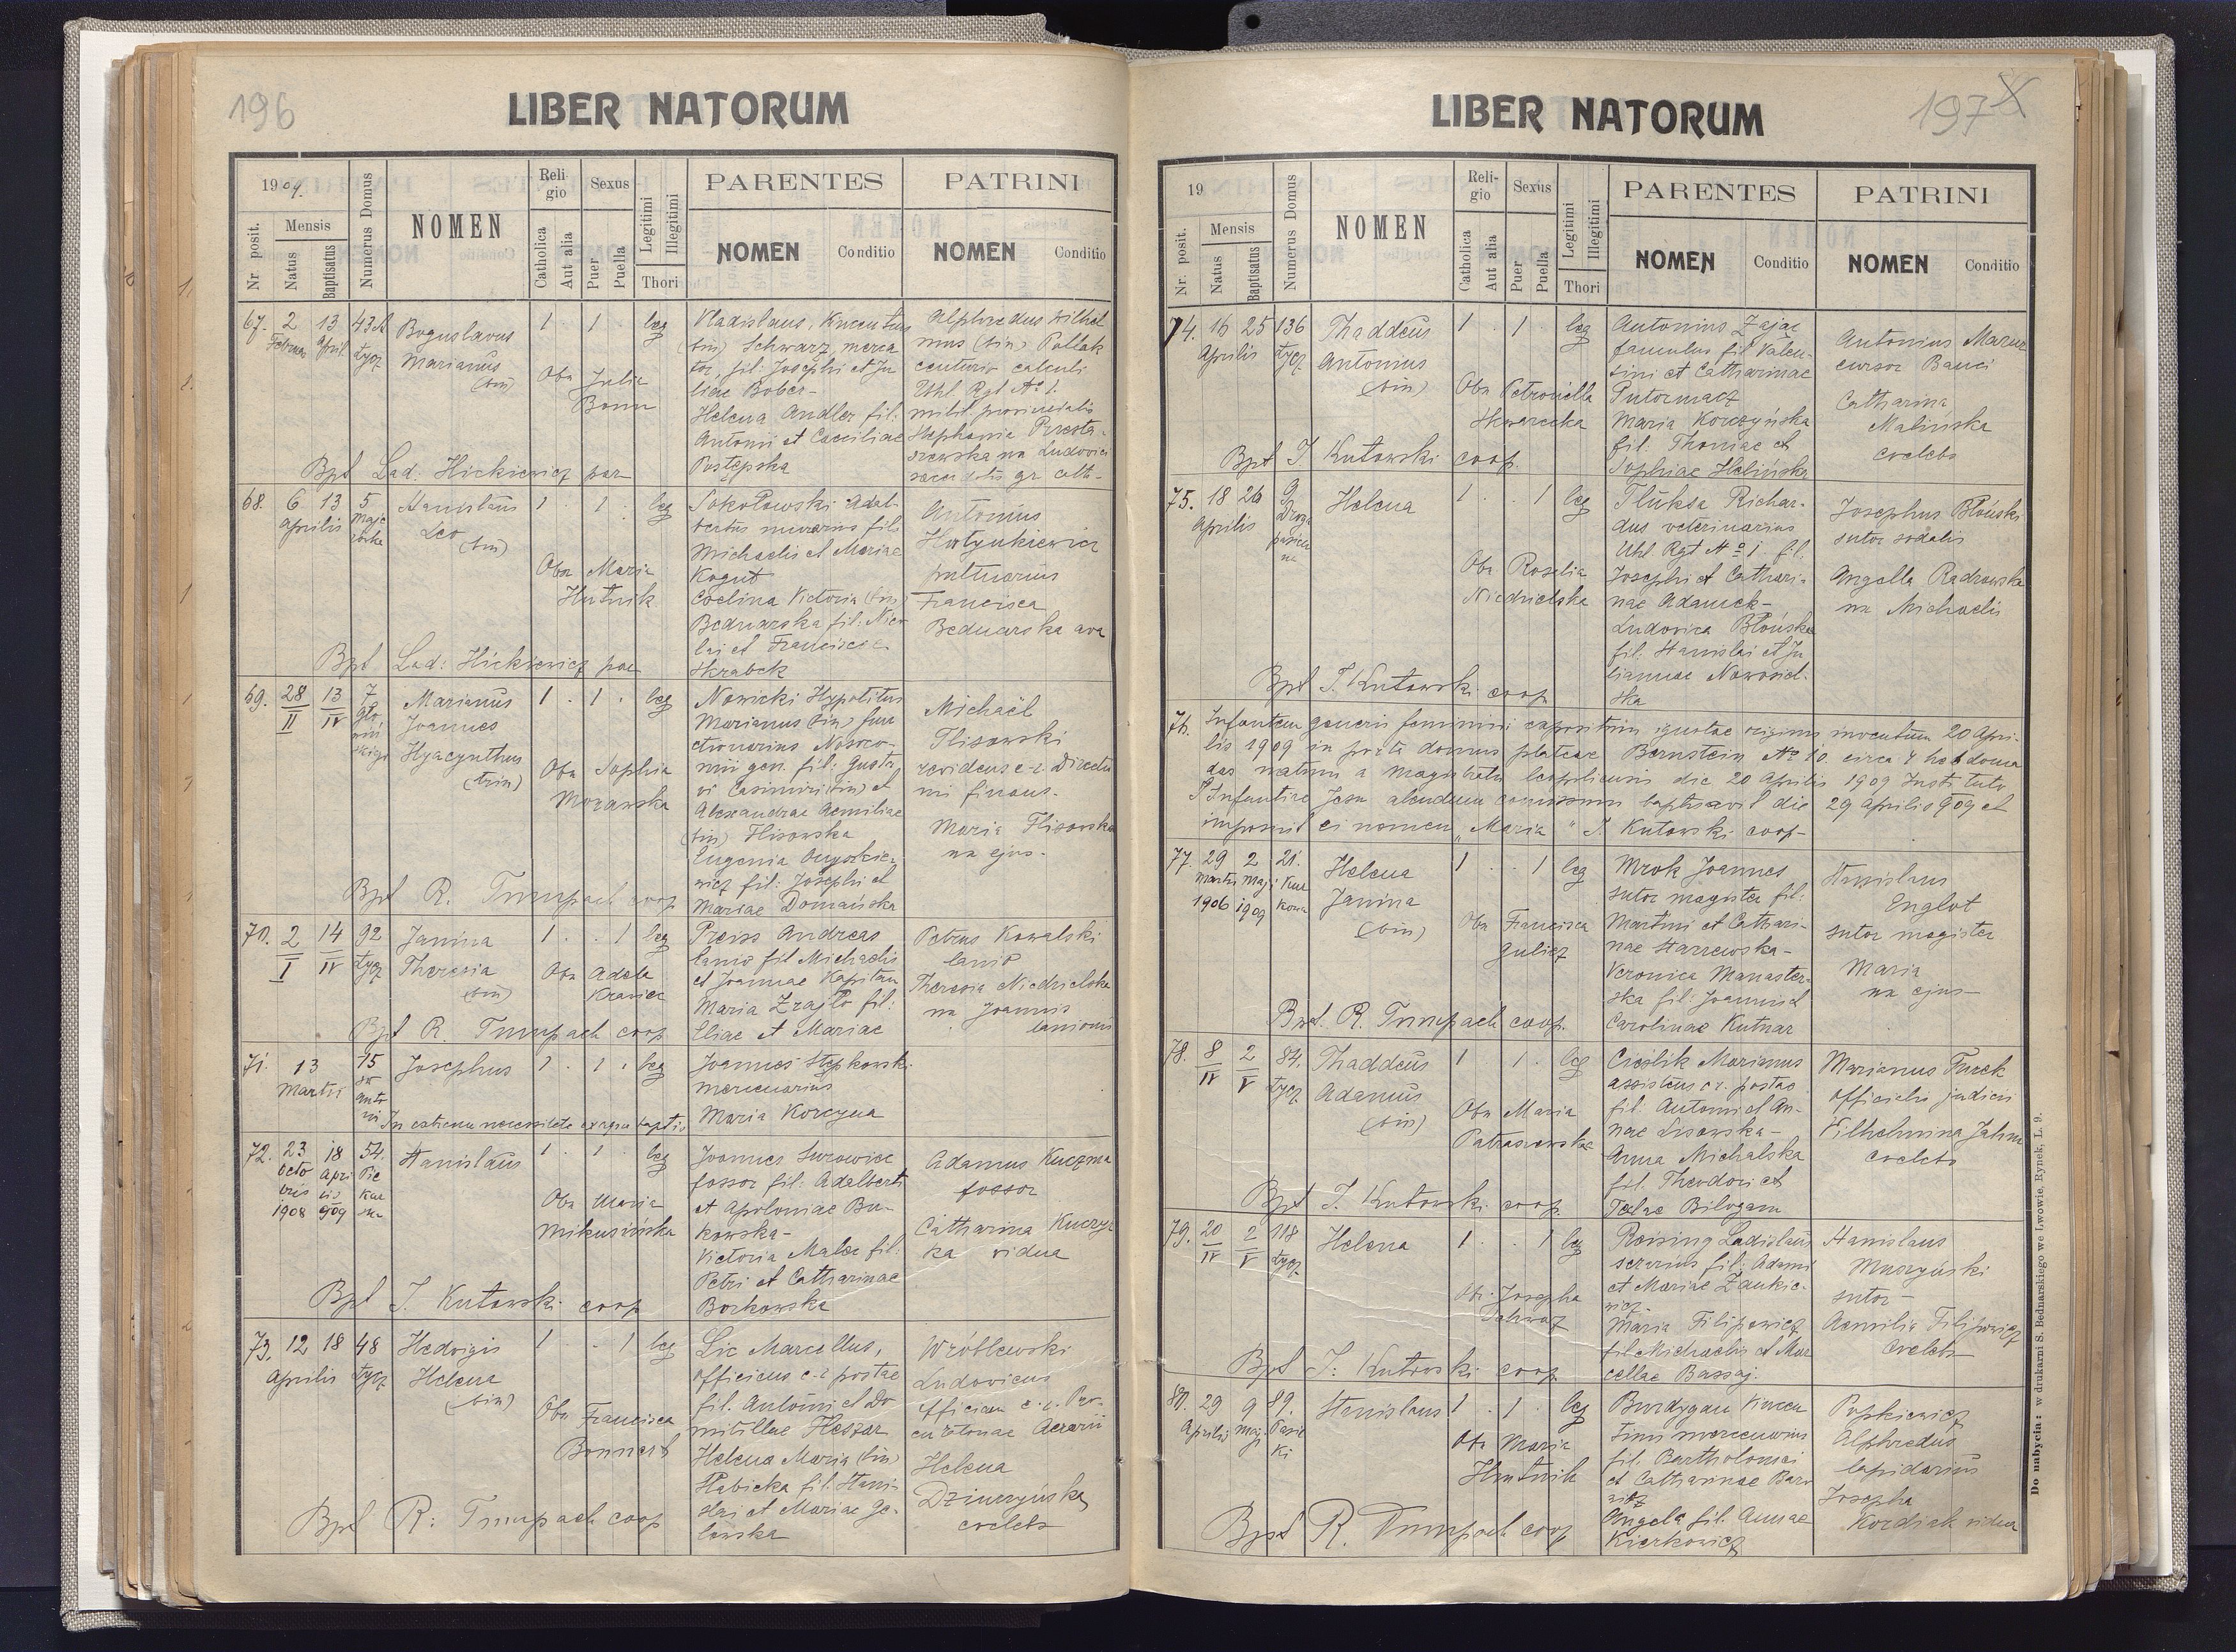 196
LIBER NATORUM
1909.
Nr. posit.
Mensis
Natus
Baptisatus
Numerus Domus
NOMEN
Religio
Catholica
Aut alia
Sexus
Puer
Puella
Legitimi
Illegitimi
Thori
PARENTES
NOMEN
Conditio
PATRINI
NOMEN
Conditio
67. 2 13 43A
April. Łycz
Boguslavus
Marianus
(bin)
1 . 1 . leg
Obst Julia
Bonn
Vladislaus,
(bin) Schwarz merca
tor, fil: Josephi et Ju
liae Bober -
Helena Andler fil:
Antonii et Caeciliae
Postępska
Alphredus Wilhel
mus (bin) Pollak
centurio
Uhl. Rgt No 1.
milit. provincialis
Stephania
na Ludovici
gr. cath -
Bpt Lad: Hickiewicz par
68. 6 13 5
Aprilis
Stanislaus
Leo
(bin)
1 . 1 . leg
Obst Maria
Hutnik
Sokołowski Adal
bertus murarius fil:
Michaelis et Mariae
Kogut
Evelina Victoria (bin)
Bednarska fil: Nico
lai et Franciscae
Skrabek
Antonius
Francisca
Bednarska ava
Bpt Lad: Hickiewicz par
69. 28 13 7
II IV
Marianus
Joannes
Hyacynthus
(trin)
1 . 1 . leg
Obst Sophia
Morawska
Nowicki Hypolitus
Marianus (bin) fun
ctionarius Nosoco-
mii gen. fil: Gusta
vi Casimiri (bin) et
Alexandrae Aemiliae
(bin) Flisowska
Eugenia
fil: Josephi et
Mariae Domańska
Michaël
Flisowski
revidens c. r. Directio
nis finans.
Maria Flisowska
na ejus -
Bpt R. Trumpach coop
70. 2 14 92
I IV Łycz
Janina
Theresia
(bin)
1 . . 1 leg
Obst Adela
Kravier
Preiss Andreas
lanio fil Michaelis
et Joannae Kapitan
Maria Zrajło fil:
Eliae et Mariae
Petrus Kowalski
lanio
Theresia Niedzielska
na Joannis
lanionis
Bpt R. Trumpach coop
71. 13 15
Martii
Josephus
1 . 1 . leg
Joannes Stępkowski
mercenarius
Maria Korczyna
In extrema necessitate ex aqua baptis
72. 23 18 54.
Octo Apri Pie
bris lis kar
1908 909 ska
Stanislaus
1 . 1 . leg
Obst Maria
Mikusińska
Joannes Surowiec
fossor fil: Adalberti
et Apoloniae Bu-
kowska -
Victoria Maler fil:
Petri et Catharinae
Borkowska
Adamus Kuczma
fossor
Catharina
vidua
Bpt J. Kutowski coop
73. 12 18 48
Aprilis Łycz
Hedvigis
Helena
(bin)
1 . . 1 leg
Obst Francisca
Bonnert
Lic Marcellus,
officians c. r. postae
fil. Antonii et Do
mitillae Fleszar
Helena Maria (bin)
Habicka fil. Stani-
slai et Mariae
Wróblewski
Ludovicus
officians c. r. Pro-
curatoriae Aerarii
Helena
Dziurzyńska
coelebs
Bpt R: Trumpach coop
197
LIBER NATORUM
19
Nr. posit.
Mensis
Natus
Baptisatus
Numerus Domus
NOMEN
Religio
Catholica
Aut alia
Sexus
Puer
Puella
Legitimi
Illegitimi
Thori
PARENTES
NOMEN
Conditio
PATRINI
NOMEN
Conditio
74. 16 25 136
Aprilis Łycz
Thaddeus
Antonius
(bin)
1 . 1 . leg
Obst Petronella
Skwarecka
Antonius Zając
famulus fil Valen-
tini et Catharinae
Putormacz
Maria Korczyńska
fil: Thomae et
Sophiae Helińska
Antonius Mazur
cursor Banci
Catharina
Malińska
coelebs
Bpt J. Kutowski coop.
75. 18 26 9
Aprilis
Helena
1 . . 1 leg
Obst Rosalia
Niedzielska
Fluksa Richar-
dus veterinarius
Uhl. Rgt No 1. fil.
Josephi et Cathari-
nae Adamek -
Ludovica Błońska
fil: Stanislai et Ju
liannae Nowosiel-
ska
Josephus Błoński
sutor sodalis
Angella Radzowska
na Michaelis
Bpt J. Kutowski coop
76. Infantem generis feminini expositum ignotae originis inventum 20 Apri-
lis 1909 in porta domus plateae Bernstein No 10. circa 4 hebdoma
das natum a Magistratu leopoliensi die 20 Aprilis 1909 Instituto
Infantis Jesu alendum comissum baptisavit die 29 Aprilis 909 et
imposuit ei nomen "Maria" J. Kutowski coop -
77. 29 2 21.
Martii Maji Kur
1906 1909 kowa
Helena
Janina
(bin)
1 . . 1 leg
Obst Francisca
Gulicz
Mrok Joannes
sutor magister fil:
Martini et Cathari-
nae Starzewska -
Veronica Manaster-
ska fil: Joannis et
Carolinae Kutnar
Stanislaus
Englot
sutor magister
Maria
na ejus -
Bpt. R. Trumpach coop.
78. 8 2 84.
IV V Łycz
Thaddeus
Adamus
(bin)
1 . 1 . leg
Obst Maria
Patraszewska
Cieślik Marianus
assistens c. r. postae
fil: Antonii et An-
nae Lisowska -
Anna Michalska
fil. Theodori et
Teclae Bilogan
Marianus Turek
officialis judicii
Vilhelmina Jahn
coelebs
Bpt J. Kutowski coop.
79. 20 2 118
IV V Łycz
Helena
1 . . 1 leg
Obst: Josepha
Schwarz
Roising Ladislaus
fil: Adami
et Mariae Żankie-
wicz -
Maria Filipowicz
fil Michaelis et Mar
cellae Bassaj.
Stanislaus
Muszyński
sutor -
Aemilia Filipowicz
coelebs
Bpt J: Kutowski coop
80. 29 9 89.
Aprilis Maji Pasie
ki
Stanislaus
1 . 1 . leg
Obst Maria
Hutnik
Burdygan Vincen
tinii mercenarius
fil. Bartholomei
et Catharinae Baro
wicz
Angela fil. Annae
Kierkowicz
Popkiewicz
Alphredus
lapidarius
Josepha
Kordiak vidua
Bpt R. Trumpach coop
Do nabycia: w drukarni S. Bednarskiego we Lwowie, Rynek, L. 9.